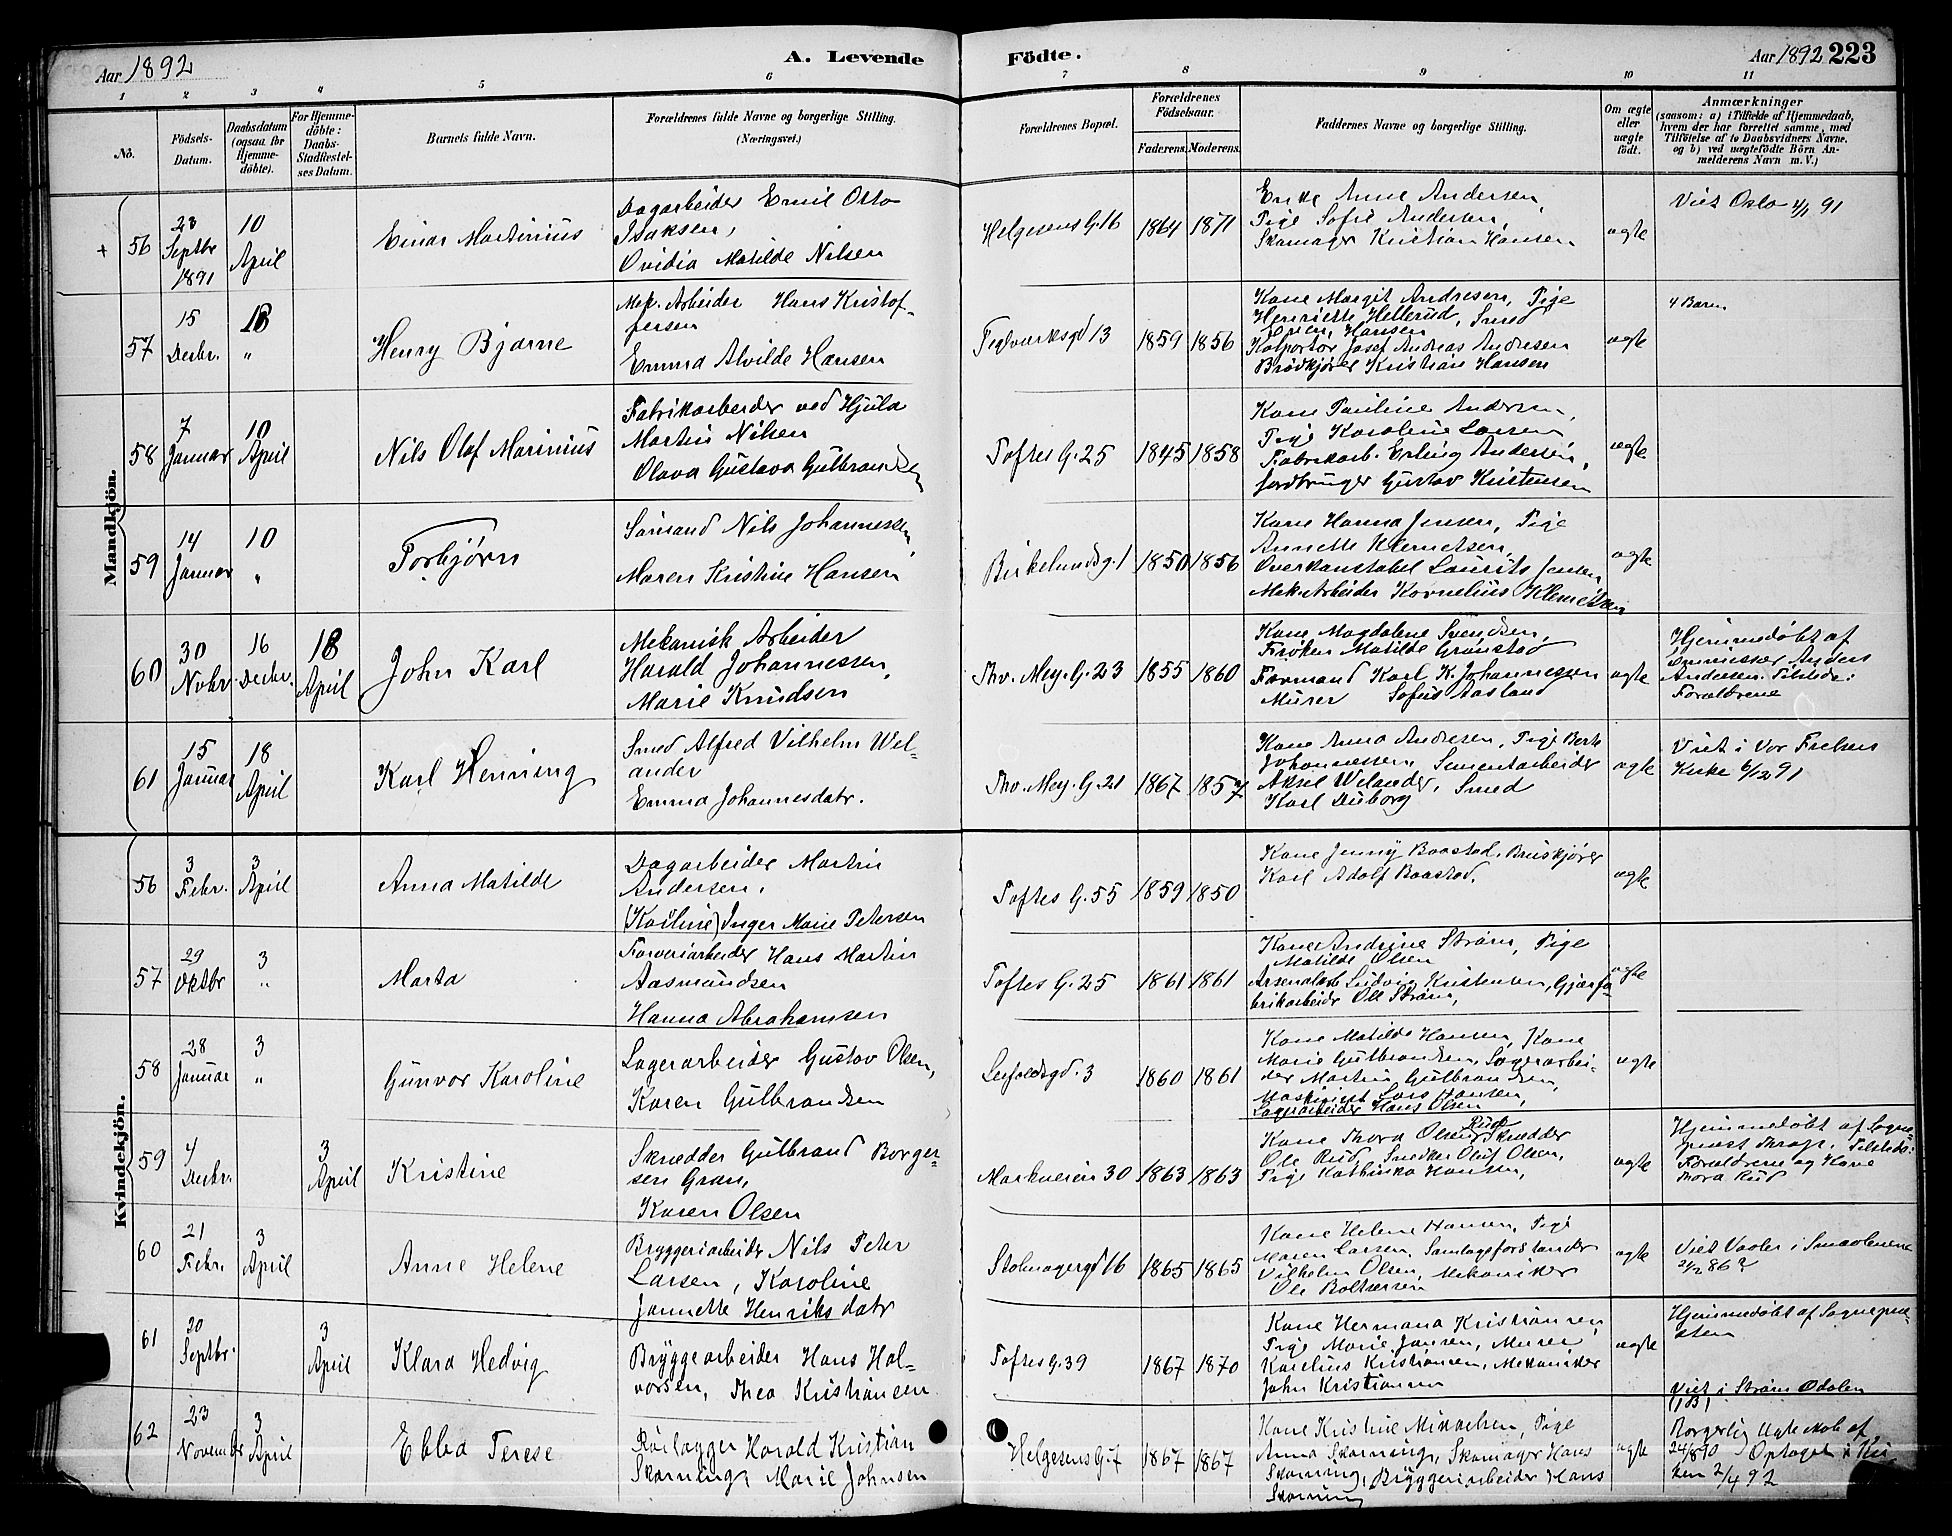 Aar 1892
A. Levende Födte.
Aar 1892 223
1 2 3 4 5 6 7 8 9 10 11
No.
Födsels-Datum.
Daabsdatum (ogsaa for Hjemme-döbte).
For Hjemme-döbte: Daabs-Stadfæstel-ses Datum.
Barnets fulde Navn.
Forældrenes fulde Navne og borgerlige Stilling.
(Næringsvei.)
Forældrenes Bopæl.
Forældrenes Födselsaar.
Faderens. Moderens.
Faddernes Navne og borgerlige Stilling.
Om ægte eller uægte født.
Anmærkninger
(saasom: a) i Tilfælde af Hjemmedaab,
hvem der har forrettet samme, med
Tilföielse af to Daabsvidners Navne,
og b) ved uægtefödte Börn An-
melderens Navn m. V.)
Mandkjön.
+ 56
23 Septbr 1891
10 April
Einar Martinius
Dagarbeider Emil Otto
Isaksen,
Ovidia Matilde Nilsen
Helgesens G. 16
1864 1871
Enke Anne Andersen,
Pige Sofie Andersen,
Skomager Kristian Hansen
ægte
Viet Oslo 4/1 91
57
15 Decbr.
18 "
Henry Bjarne
Mek. Arbeider Hans Kristof-
fersen
Emma Alvilde Hansen
Teglværksgd 13
1859 1856
Kone Margit Andresen, Pige
Henriette Hellerud, Smed
Even Hansen
Kolportør Josef Andreas Andresen
Brødkjører Kristian Hansen
ægte
4 Barn
58
7 Januar
10 April
Nils Olaf Marinius
Fabrikarbeider ved Hjula
Martin Nilsen
Olava Gustava Gulbrandsen
Toftes G. 25
1845 1858
Kone Pauline Andersen,
Pige Karoline Larsen
Fabrikarb. Erling Andersen,
Jordbruger Gustav Kristensen
ægte
59
14 Januar
10 "
Torbjørn
Sømand Nils Johannessen,
Maren Kristine Hansen
Birkelundsg. 1
1850 1856
Kone Hanna Jensen, Pige
Annette Klemetsen,
Overkonstabel Laurits Jensen
Mek. Arbeider Kornelius Klemetsen
ægte
60
30 Novbr.
16 Decbr.
18 April
John Karl
Mekanisk Arbeider
Harald Johannessen,
Marie Knudsen
Thv. Mey. G. 23
1855 1860
Kone Magdalene Svendsen,
Frøken Matilde Grønstad
Formand Karl K. Johannessen
Murer Sofus Aasland
ægte
Hjemmedøbt af
Anders
Andersen. Tilstede:
Forældrene
61
15 Januar
18 April
Karl Henning
Smed Alfred Vilhelm Wel-
ander
Emma Johannesdatr.
Thv. Mey. G. 21
1867 1857
Kone Anna Andresen, Pige Berte
Johannessen, Sementarbeider
Aksel Welander, Smed
Karl Duborg
ægte
Viet i Vor Frelsers
Kirke 6/12 91
Kvindekjön.
56
3 Febr.
3 April
Anna Matilde
Dagarbeider Martin
Andersen,
(Karline) Inger Marie Petersen
Toftes G. 55
1859 1850
Kone Jenny Baastad, Bruskjører
Karl Adolf Baastad.
ægte
57
29 Oktbr
3 "
Marta
Farveriarbeider Hans Martin
Aasmundsen
Hanna Abrahamsen
Toftes G. 25
1861 1861
Kone Andrine Strøm, Pige
Matilde Olsen
Arsenalarb Ludvig Kristensen, Gjærfa-
brikarbeider Ole Strøm,
ægte
58
28 Januar
3 "
Gunvor Karoline
Lagerarbeider Gustav Olsen,
Karen Gulbrandsen
Seifoldsgd. 3
1860 1861
Kone Matilde Hansen, Kone
Marie Gulbrandsen, Lagerarbei-
der Martin Gulbrandsen,
Maskinist Lars Hansen,
Lagerarbeider Hans Olsen
ægte
59
4 Decbr.
3 April
Kristine
Skrædder Gulbrand Borger-
sen Gran,
Karen Olsen
Markveien 30
1863 1863
Kone Thora Olsen Rud, Skrædder
Ole Rud, Snedker Oluf Olsen,
Pige Kathinka Hansen,
ægte
Hjemmedøbt af Sogne-
prest Thrap. Tilstede:
Forældrene og Kone
Thora Rud
60
21 Febr.
3 April
Anne Helene
Bryggeriarbeider Nils Peter
Larsen, Karoline
Jannette Henriksdatr
Stolmagergd 16
1865 1865
Kone Helene Hansen, Pige
Maren Larsen, Samlagsforstander
Vilhelm Olsen, Mekaniker
Ole Boltersen
ægte
Viet Vaaler i Smaalenene
2/2 86?
61
20 Septbr.
3 April
Klara Hedvig
Bryggearbeider Hans Hal-
vorsen, Thea Kristiansen
Toftes G. 39
1867 1870
Kone Hermana Kristiansen,
Pige Marie Jansen, Murer
Karelius Kristiansen, Mekaniker
John Kristiansen
ægte
Hjemmedøbt af Sognepre-
sten
Viet i Strøm Odalen
62
23 November
3 April
Ebba Terese
Rørlægger Harald Kristian
Skarning, Marie Johnsen
Helgesens G. 7
1867 1867
Kone Kristine Mikkelsen, Pige
Anna Skarning, Skomager Hans
Skarning, Bryggeriarbeider Hans
Skarning
ægte
Borgerlig Ægteskab af
24/8 90 Optaget i Kir
ken 2/4 92